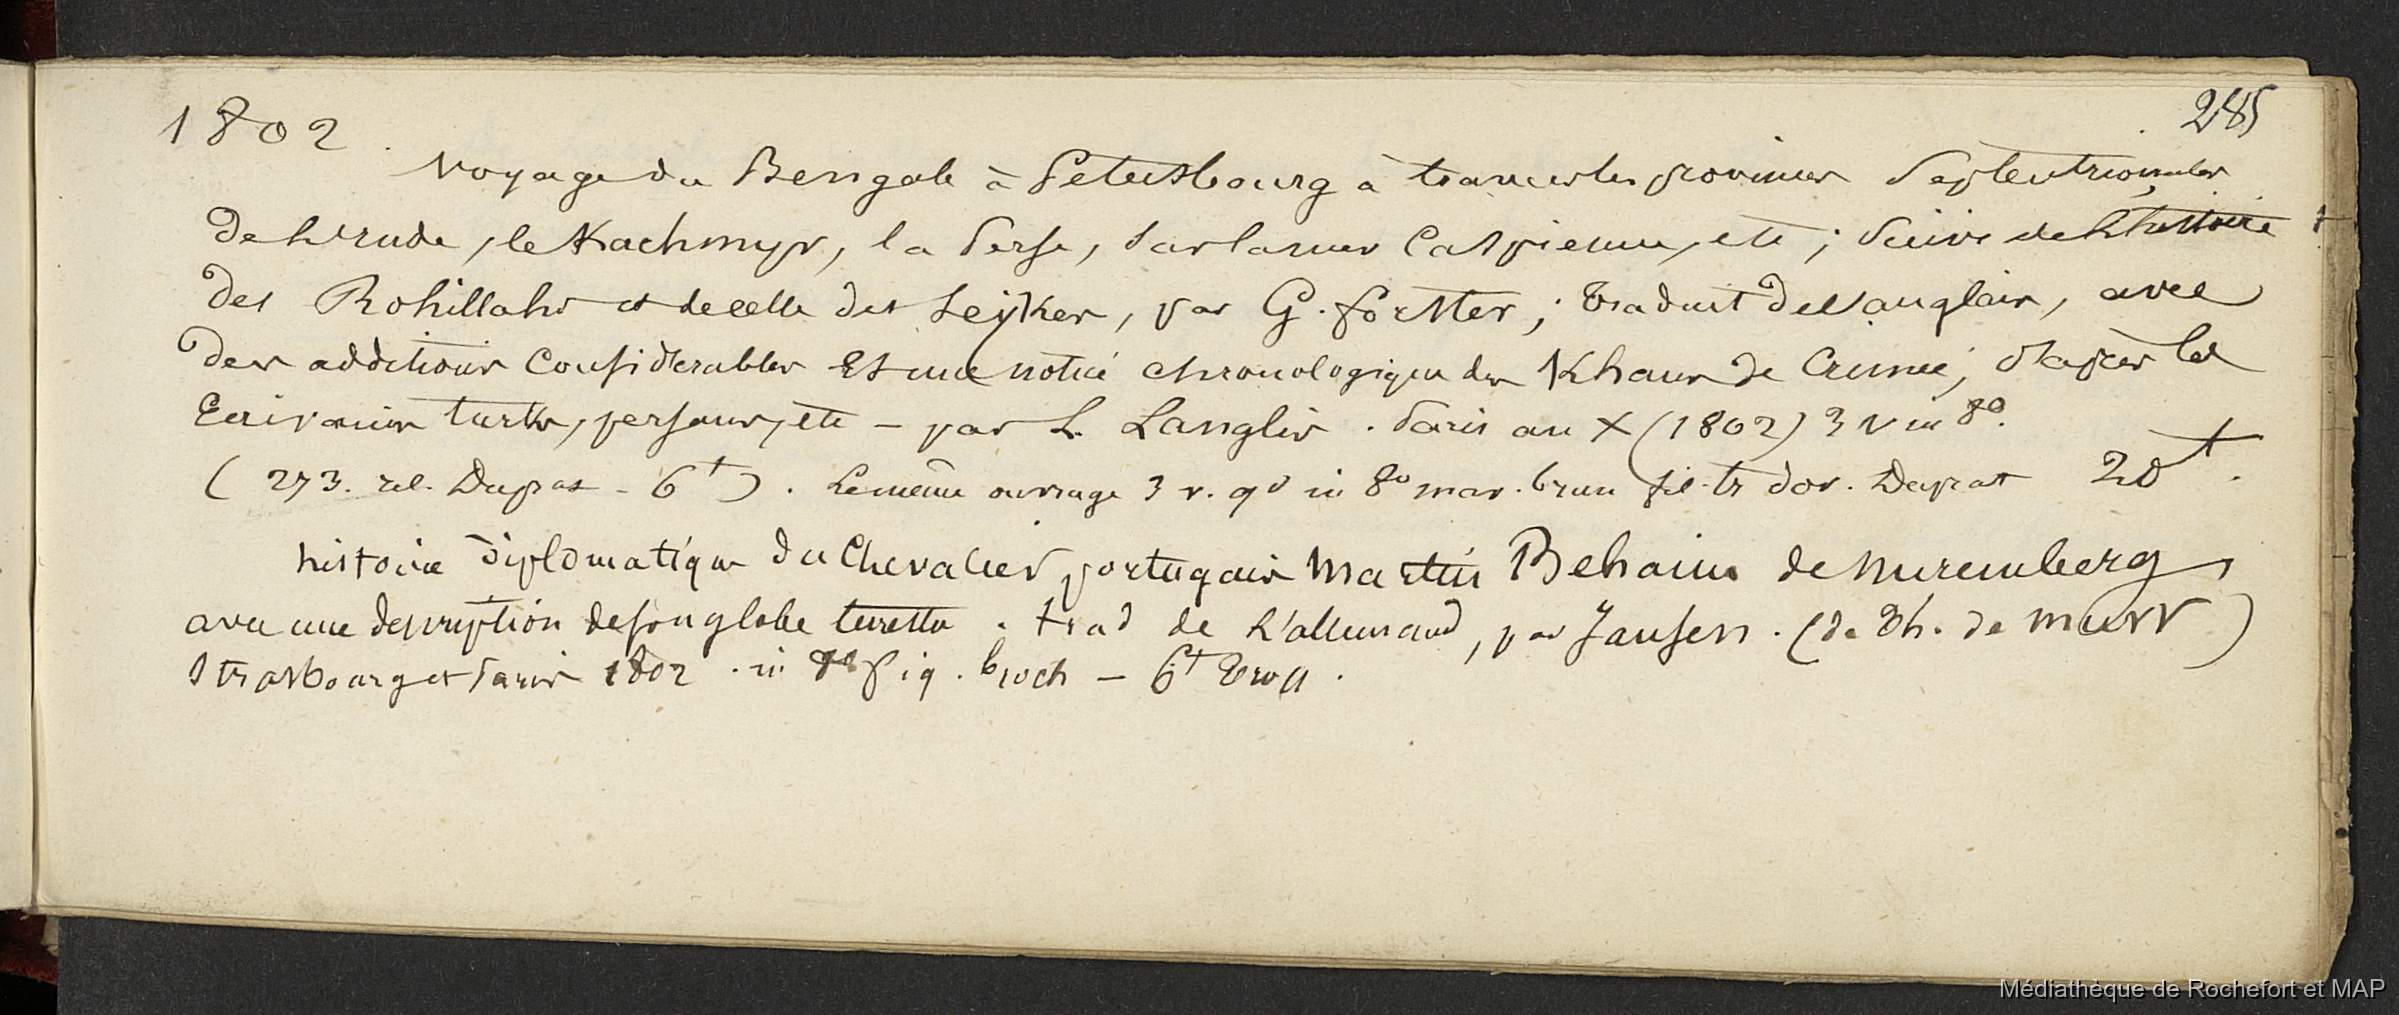 285
1802.
Voyage du Bengale à Petersbourg a travers les provinces septentrionales
de l'Inde, le Kachmyr, la Perse, sur la mer Caspienne, etc ; suivi de l'histoire
des Rohillahs et de celle des Seykes, par G. Forster ; traduit de l'anglais, avec
des additions considerables et une notice chronologique des Khans de Crimée, d'apres les
Ecrivains turks, persans, etc - par L. Langlès. Paris an X (1802) 3 v in 8°.
( 273. rel. Duprat - 6f ). Le même ouvrage 3 v. gd in 8° mar. brun fil. tr dor. Duprat 20f.
histoire diplomatique du Chevalier portugais Martin Behaim de Nuremberg,
avec une description de son globe terrestre. trad de l'allemand, par Jansen. (de Th. de Murr)
Strasbourg et Paris 1802. in 8° fig. broch - 6f Tross.
Médiathèque de Rochefort et MAP